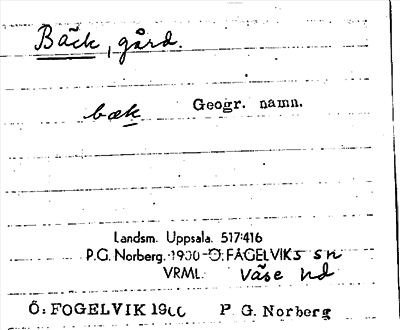 Bäck, gård.
bæk Geogr. namn.
Landsm. Uppsala. 517:416
P.G. Norberg. 1900 Ö. FÅGELVIKS sn
VRML. Väse hd
Ö: FOGELVIK 1900 P G. Norberg